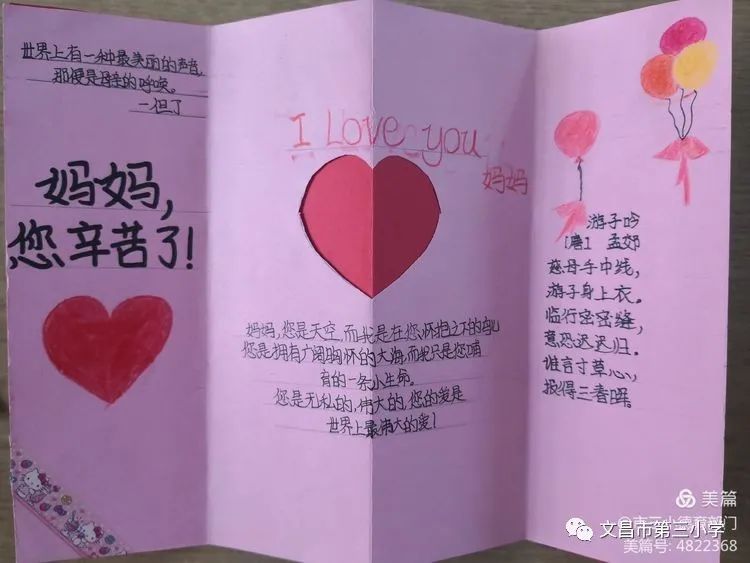 世界上有一种最美丽的声音,
那便是母亲的呼唤。
—但丁
妈妈,
您辛苦了!
I Love you
妈妈
妈妈,您是天空,而我是在您怀抱之下的鸟儿
您是拥有广阔胸怀的大海,而我只是您哺
育的一条小生命。
您是无私的,伟大的,您的爱是
世界上最伟大的爱!
游子吟
[唐] 孟郊
慈母手中线,
游子身上衣。
临行密密缝,
意恐迟迟归。
谁言寸草心,
报得三春晖。
美篇
@市三小德育部门
文昌市第三小学
美篇号: 4822368